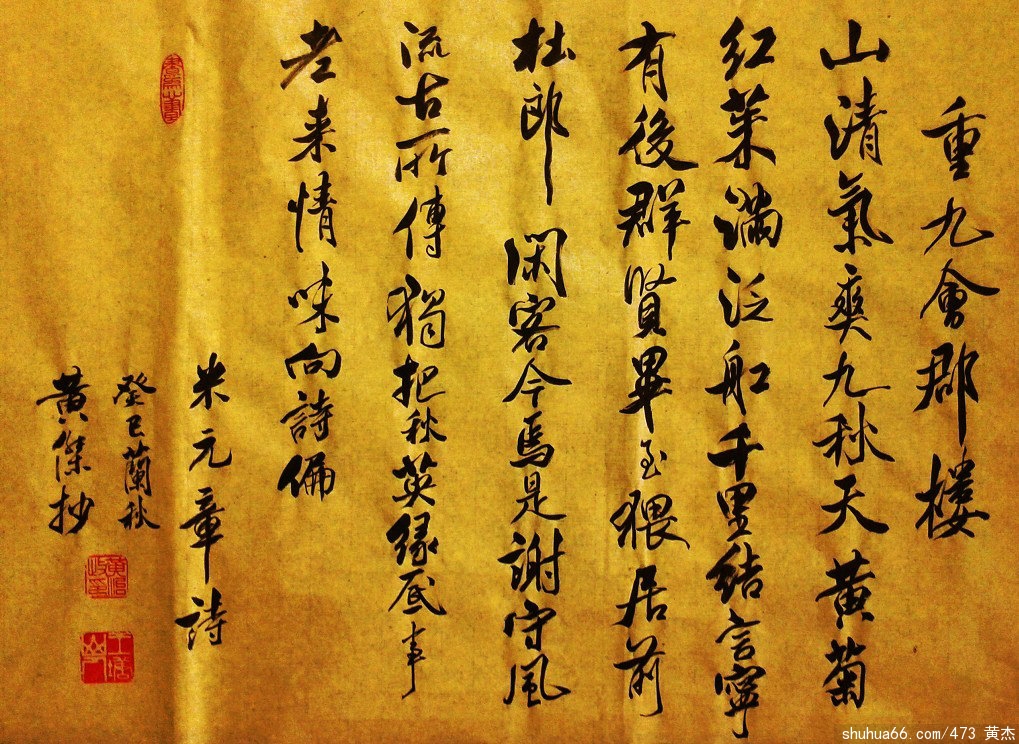 重九會郡樓
山清氣爽九秋天黄菊
紅茱滿泛船千里結言寧
有後群賢畢至猥居前
杜郎閑客今焉是謝守風
流古所傳獨把秋英緣底事
老来情味向詩偏
米元章詩
癸巳蘭秋
黄傑抄
shuhua66.com/473 黄杰